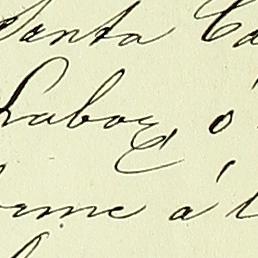 Santa Ca
Labor ó
erme á l